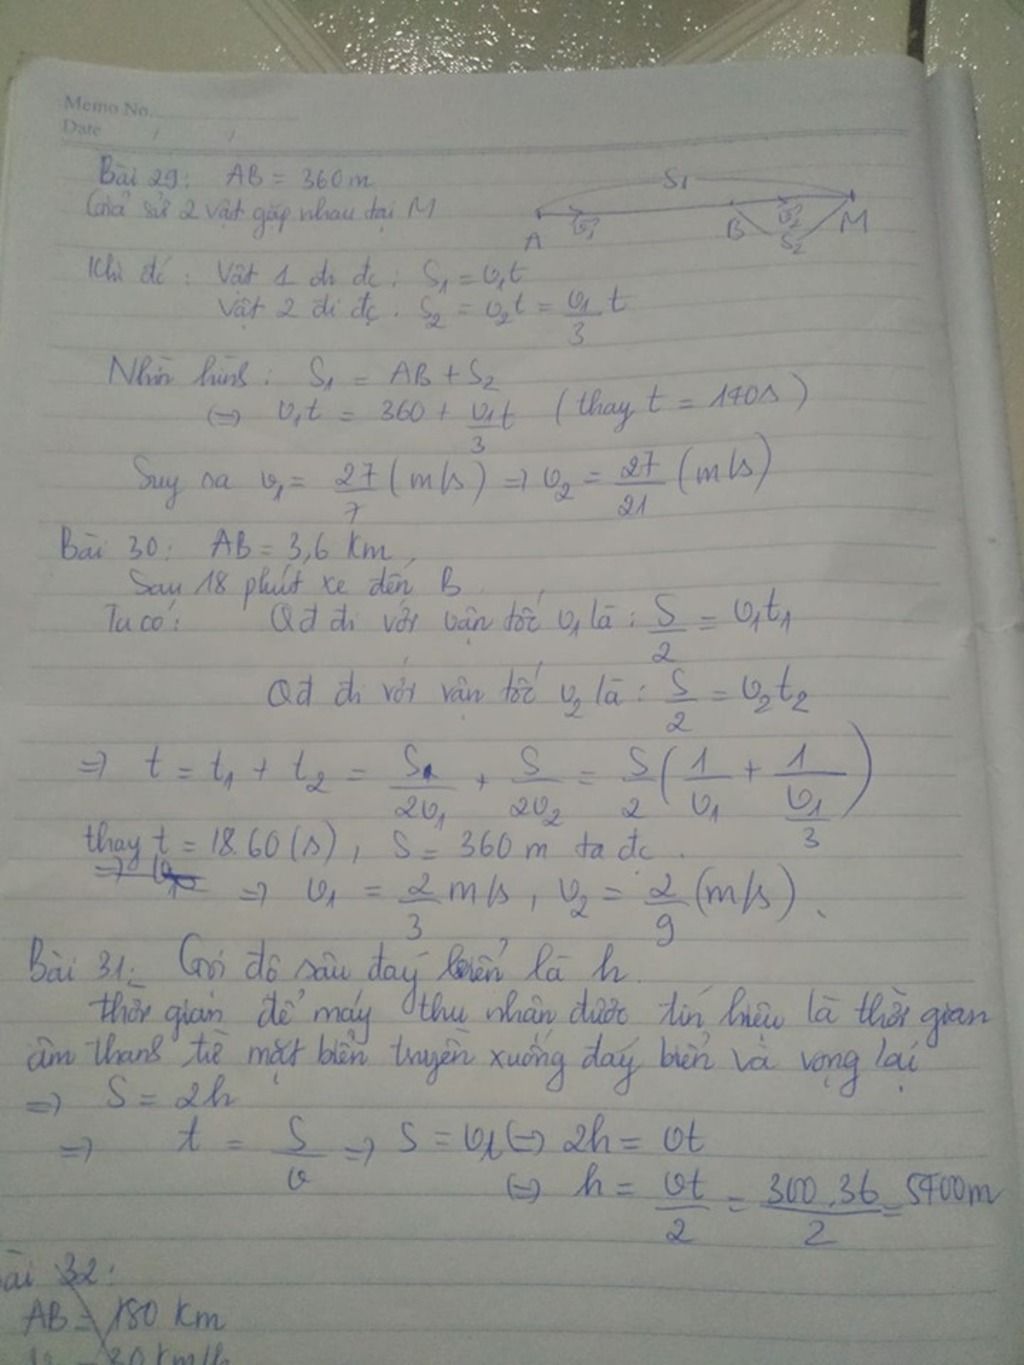 Memo No.
Date / /
Bài 29: AB = 360 m
Giả sử 2 vật gặp nhau tại M
S1
A v1 B v2 S2 M
Khi đó: Vật 1 đi đc: S1 = v1t
Vật 2 đi đc. S2 = v2t = v1/3 t
Nhìn hình: S1 = AB + S2
(=) v1t = 360 + v1/3 t (thay t = 140s)
Suy ra v1 = 27/7 (m/s) => v2 = 27/21 (m/s)
Bài 30: AB = 3,6 Km.
Sau 18 phút xe đến B
Ta có: Qđ đi với vận tốc v1 là: S/2 = v1t1
Qđ đi với vận tốc v2 là: S/2 = v2t2
=> t = t1 + t2 = S/2v1 + S/2v2 = S/2 (1/v1 + 1/(v1/3))
thay t = 18.60(s), S = 360 m ta đc.
=> v1 = 2/3 m/s, v2 = 2/9 (m/s).
Bài 31: Gọi độ sâu đáy biển là h.
thời gian để máy thu nhận được tín hiệu là thời gian
âm thanh từ mặt biển truyền xuống đáy biển và vọng lại
=> S = 2h
=> t = S/v => S = vt (=) 2h = vt
(=) h = vt/2 = 300.36/2 = 5400m
ài 32:
AB = 180 Km